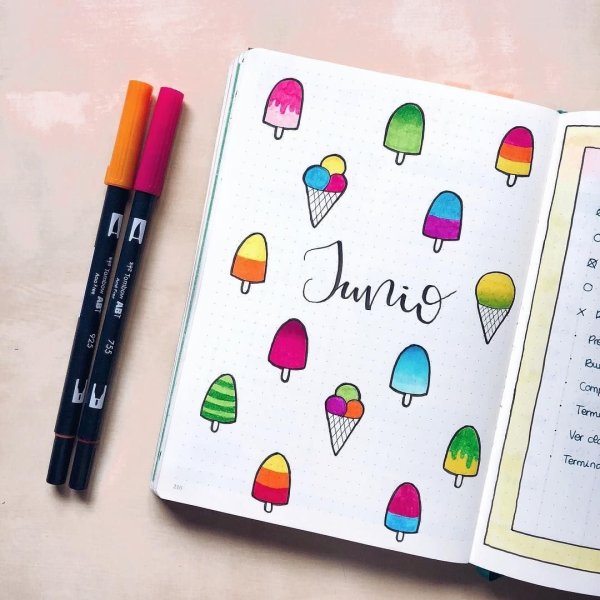 Junio
Tombow ABT
925
Tombow ABT
755
210
Pre
Bu
Comp
Term
Ver cl
Termina